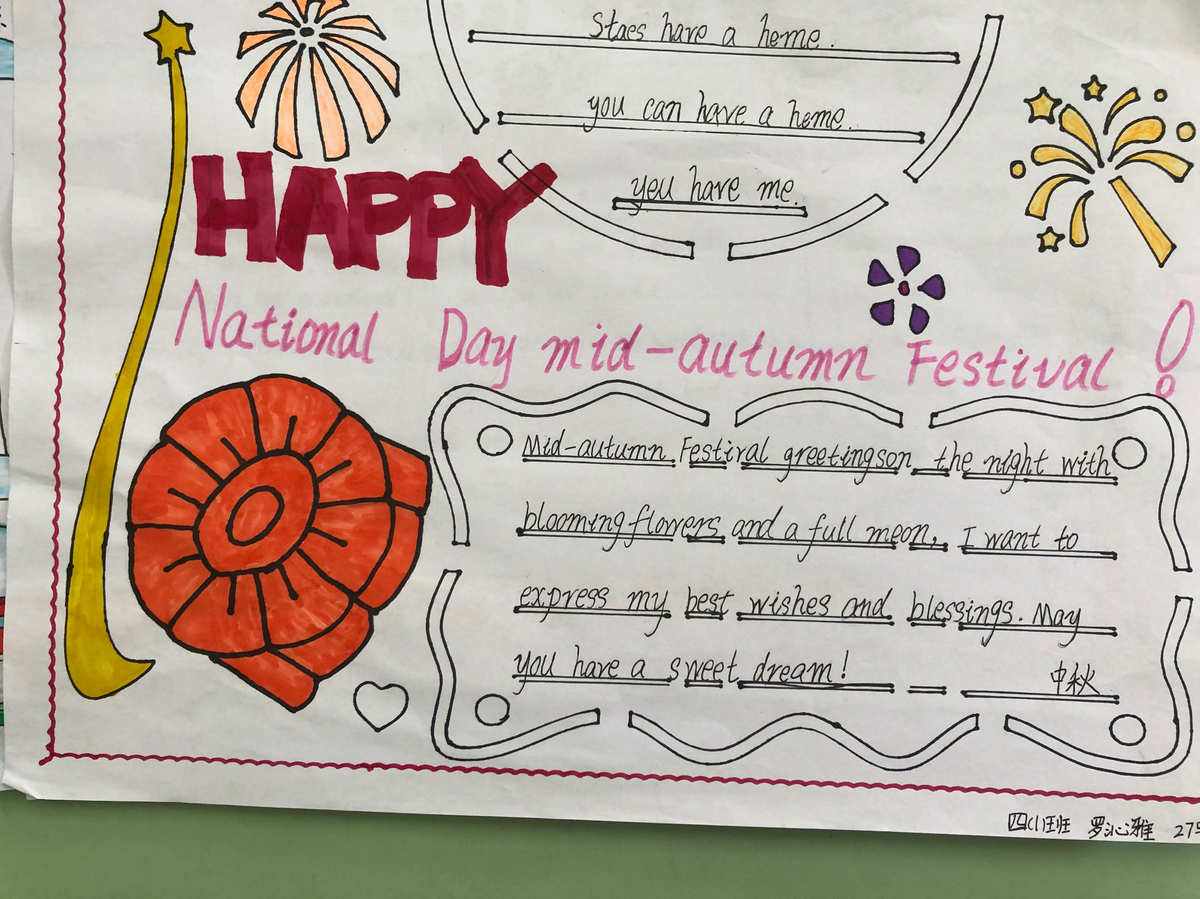 Staes have a heme.
you can have a heme.
yeu have me.
HAPPY
National Day mid-autumn Festival!
Mid-autumn Festival greetingson the night with
blooming flowers and a full meon, I want to
express my best wishes and blessings. May
you have a sweet dream!
中秋
四(1)班 罗沁雅 27号